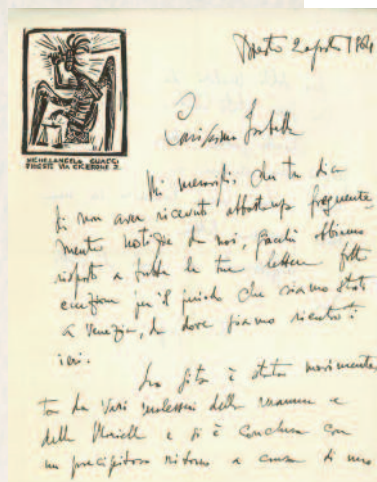 MICHELANGELO GUACCI
TRIESTE VIA CICERONE 2.
Trieste 2 agosto 1964
Carissima
Mi meraviglia che tu dica
di non aver ricevuto abbastanza frequente
mente notizie da noi, giacché abbiamo
risposto a tutte le tue lettere fatta
eccezione per il periodo che siamo stati
a Venezia, da dove siamo rientrati
ieri.
La gita è stata movimenta
ta da vari malesseri della mamma e
della e si è conclusa con
un precipitoso ritorno a causa di una